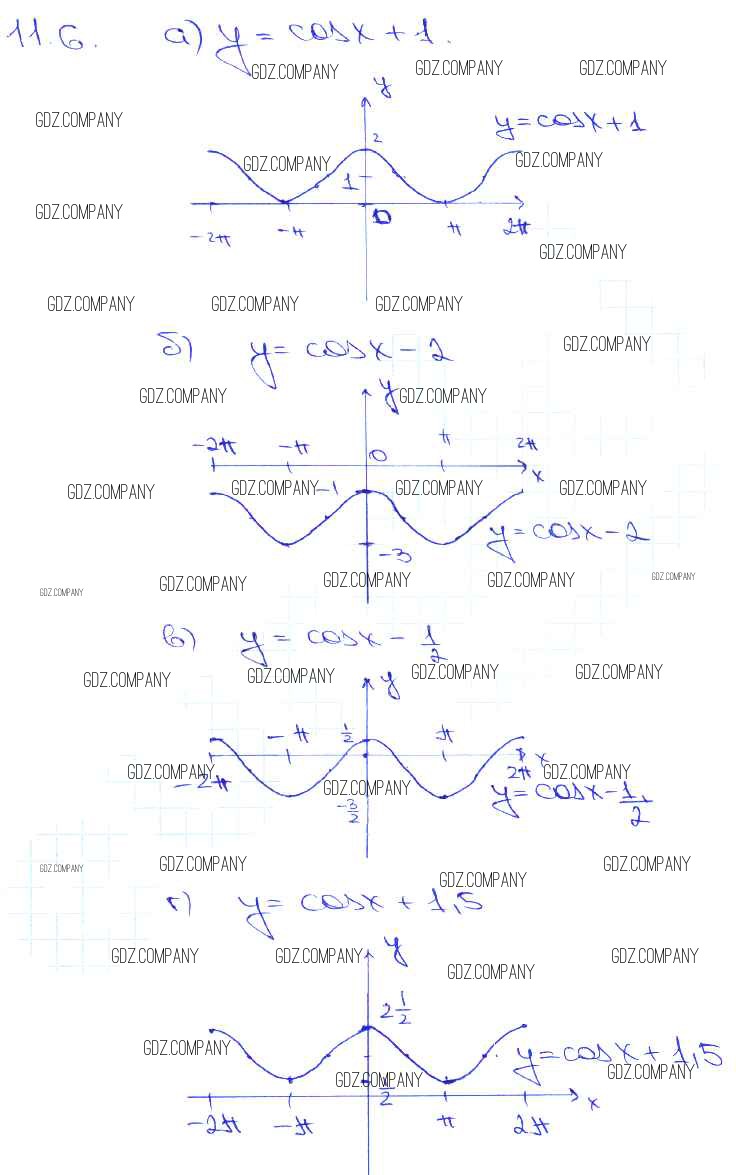 11.6. а) y = cosx + 1.
GDZ.COMPANY GDZ.COMPANY GDZ.COMPANY
y
GDZ.COMPANY y = cosx + 1
2
GDZ.COMPANY GDZ.COMPANY
1
GDZ.COMPANY 0
-2π -π π 2π
GDZ.COMPANY
GDZ.COMPANY GDZ.COMPANY GDZ.COMPANY
б) y = cosx - 2 GDZ.COMPANY
GDZ.COMPANY y GDZ.COMPANY
-2π -π 0 π 2π
x
GDZ.COMPANY GDZ.COMPANY -1 GDZ.COMPANY GDZ.COMPANY
y = cosx - 2
-3
GDZ.COMPANY GDZ.COMPANY GDZ.COMPANY GDZ.COMPANY GDZ.COMPANY
в) y = cosx - 1/2
GDZ.COMPANY GDZ.COMPANY GDZ.COMPANY GDZ.COMPANY
y
-π 1/2 π
x
GDZ.COMPANY 2π GDZ.COMPANY
-2π GDZ.COMPANY y = cosx - 1/2
-3/2
GDZ.COMPANY GDZ.COMPANY GDZ.COMPANY GDZ.COMPANY
г) y = cosx + 1,5
GDZ.COMPANY GDZ.COMPANY y GDZ.COMPANY GDZ.COMPANY
2 1/2
GDZ.COMPANY y = cosx + 1,5
GDZ.COMPANY GDZ.COMPANY
1/2 x
-2π -π π 2π